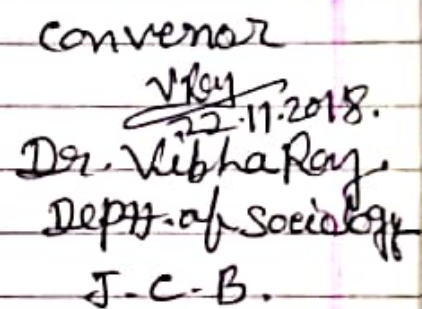 Convenor
VRay
22.11.2018.
Dr. Vibha Ray.
Deptt. of Sociology
J.C.B.